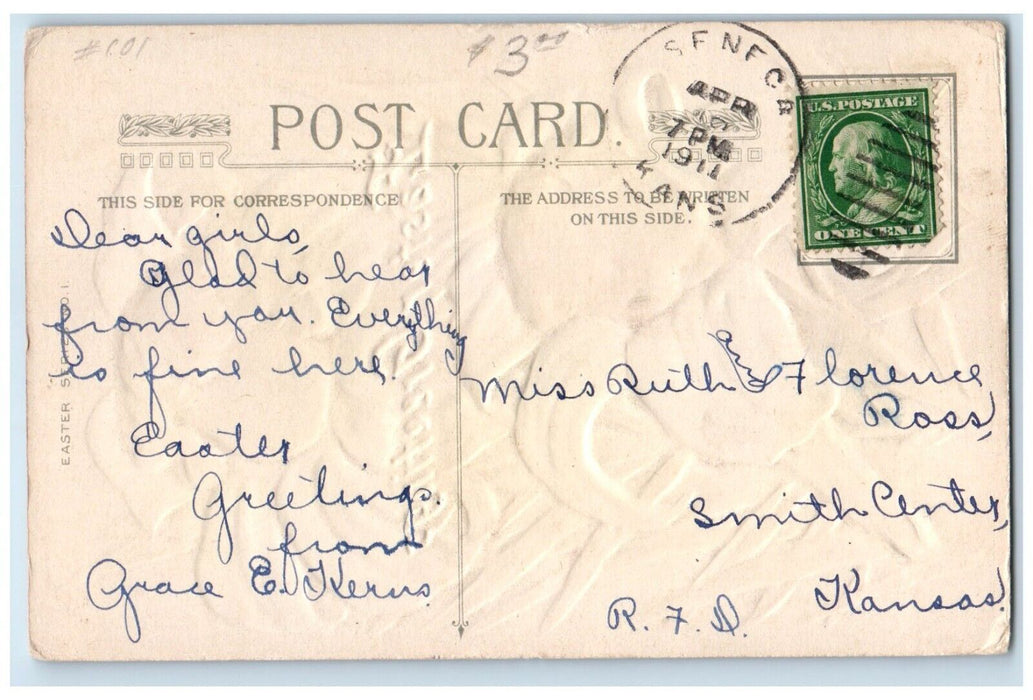 #101
$3.00
SENECA
APR
7 PM
1911
KANS
U.S. POSTAGE
ONE CENT
POST CARD.
THIS SIDE FOR CORRESPONDENCE
THE ADDRESS TO BE WRITTEN
ON THIS SIDE.
EASTER SERIES NO. 1.
Dear girls,
Glad to hear
from you. Everything
is fine here.
Easter
Greetings.
from
Grace E. Kerns.
Miss Ruth and Florence
Ross,
Smith Center,
Kansas.
R. F. D.